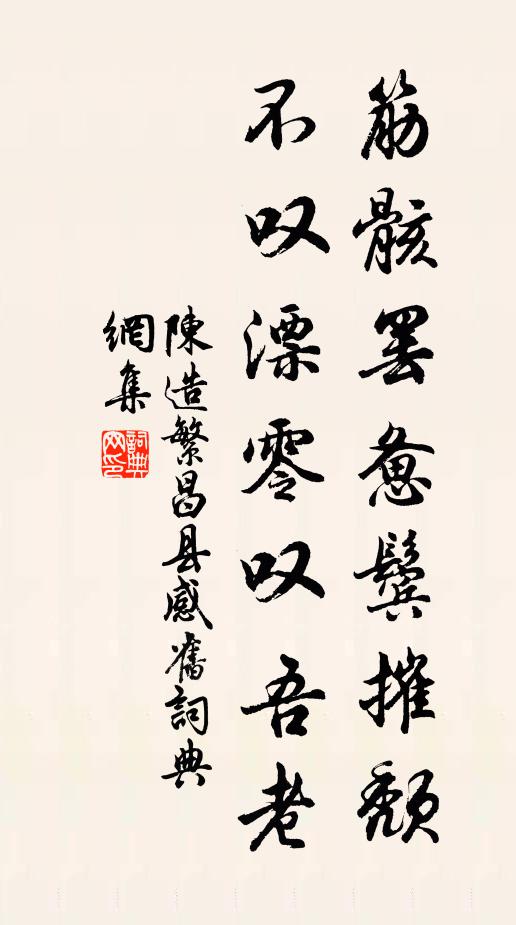 筋骸罢惫鬓摧颓
不叹漂零叹吾老
陳造繁昌县感舊詞典
網集
詞典网印